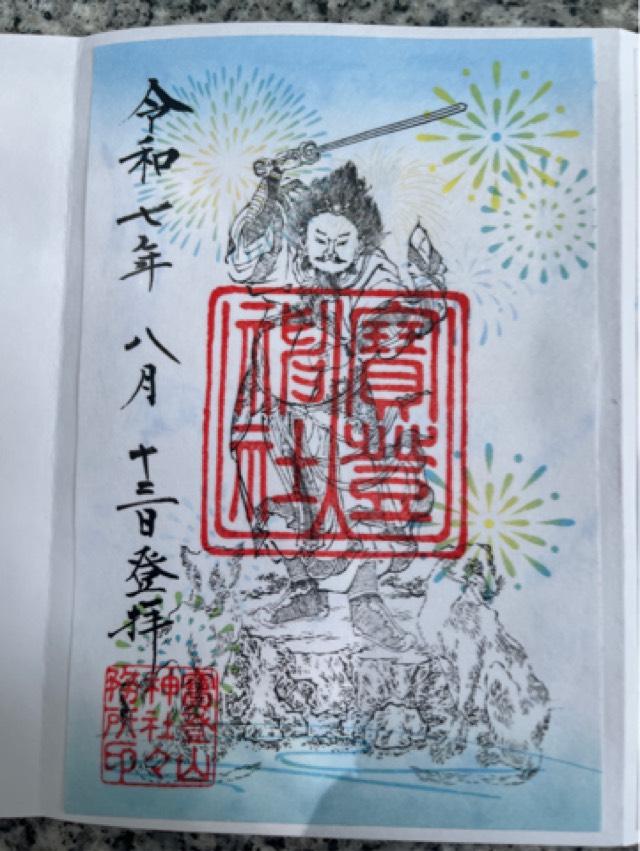 令和七年 八月 十三日登拝
寶登
神社
寶登山
神社々
務所印